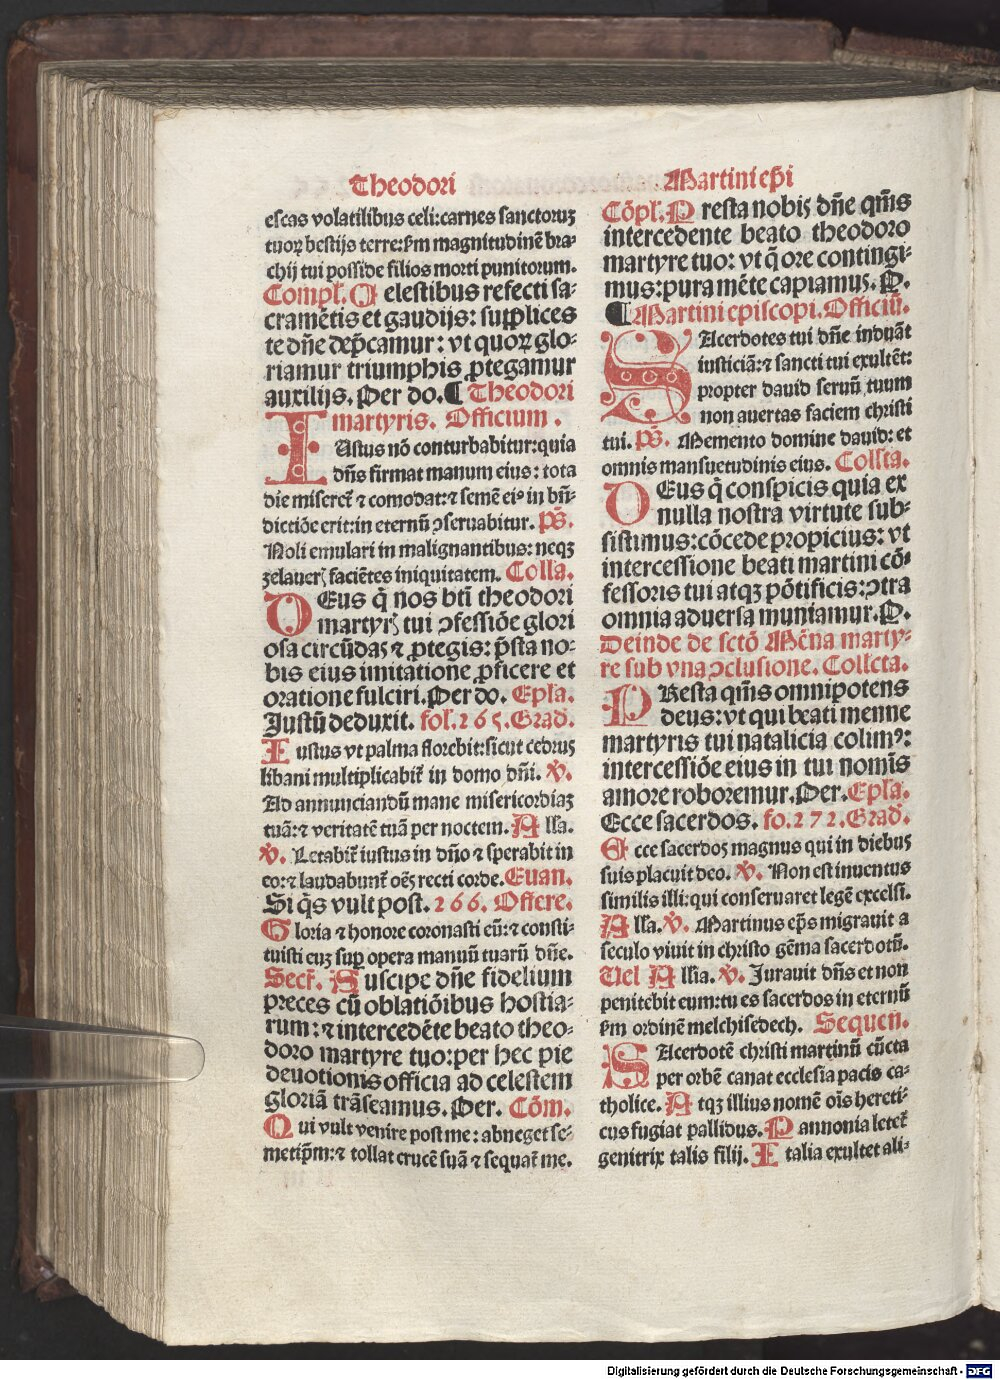 Theodori
escas volatilibus celi: carnes sanctoruꝫ
tuoꝝ bestijs terre: ẜm magnitudinē bra-
chij tui posside filios morti punitorum.
Compl̄. Celestibus refecti sa-
cramētis et gaudijs: supplices
te dn̄e dep̄camur: vt quoꝝ glo-
riamur triumphis ꝓtegamur
auxilijs. Per do. ¶ Theodori
martyris. Officium.
IUstus nō conturbabitur: quia
dn̄s firmat manum eius: tota
die miseret᷑ ⁊ comodat: ⁊ semē eiꝰ in bn̄-
dictiōe erit: in eternū ꝯseruabitur. p̄s.
Noli emulari in malignantibus: neqꝫ
zelauerꝭ faciētes iniquitatem. Colla.
DEus q̄ nos bt̄i theodori
martyrꝭ tui ꝯfessiōe glori
osa circūdas ⁊ ꝓtegis: p̄sta no-
bis eius imitatione ꝓficere et
oratione fulciri. Per do. Epl̄a.
Justū deduxit. fol. 265. Grad̄.
Iustus vt palma florebit: sicut cedrus
libani multiplicabit᷑ in domo dn̄i. ℣.
Ad annunciandū mane misericordiaꝫ
tuā: ⁊ veritatē tuā per noctem. Alla.
℣. Letabit᷑ iustus in dn̄o ⁊ sperabit in
eo: ⁊ laudabunt᷑ oēs recti corde. Euan.
Si q̄s vult post. 266. Offere.
Gloria ⁊ honore coronasti eū: ⁊ consti-
tuisti euꝫ suꝑ opera manuū tuarū dn̄e.
Secr̄. Suscipe dn̄e fidelium
preces cū oblatiōibus hostia-
rum: ⁊ intercedēte beato theo-
doro martyre tuo: per hec pie
deuotionis officia ad celestem
gloriā trāseamus. Per. Cōm.
Qui vult venire post me: abneget se-
metip̄m: ⁊ tollat crucē suā ⁊ sequat᷑ me.
Martini ep̄i
Cōpl̄. Presta nobis dn̄e qm̄s
intercedente beato theodoro
martyre tuo: vt q̄ ore contingi-
mus: pura mēte capiamus. P.
¶ Martini episcopi. Officiū.
SAcerdotes tui dn̄e induāt
iusticiā: ⁊ sancti tui exultēt:
propter dauid seruū tuum
non auertas faciem christi
tui. p̄s. Memento domine dauid: et
omnis mansuetudinis eius. Collcta.
DEus q̄ conspicis quia ex
nulla nostra virtute sub-
sistimus: cōcede propicius: vt
intercessione beati martini cō-
fessoris tui atqꝫ pōtificis: ꝯtra
omnia aduersa muniamur. P.
Deinde de sctō Mēna marty-
re sub vna ꝯclusione. Collcta.
PResta qm̄s omnipotens
deus: vt qui beati menne
martyris tui natalicia colimꝰ:
intercessiōe eius in tui nomīs
amore roboremur. Per. Epl̄a.
Ecce sacerdos. fo. 272. Grad̄.
Ecce sacerdos magnus qui in diebus
suis placuit deo. ℣. Non est inuentus
similis illi: qui conseruaret legē excelsi.
Alla. ℣. Martinus ep̄s migrauit a
seculo viuit in christo gēma sacerdotū.
Uel Allia. ℣. Jurauit dn̄s et non
penitebit eum: tu es sacerdos in eternū
ẜm ordinē melchisedech. Sequen.
SAcerdotē christi martinū cūcta
per orbē canat ecclesia pacis ca-
tholice. Atqꝫ illius nomē oīs hereti-
cus fugiat pallidus. Pannonia letet᷑
genitrix talis filij. Italia exultet ali-
Digitalisierung gefördert durch die Deutsche Forschungsgemeinschaft - DFG